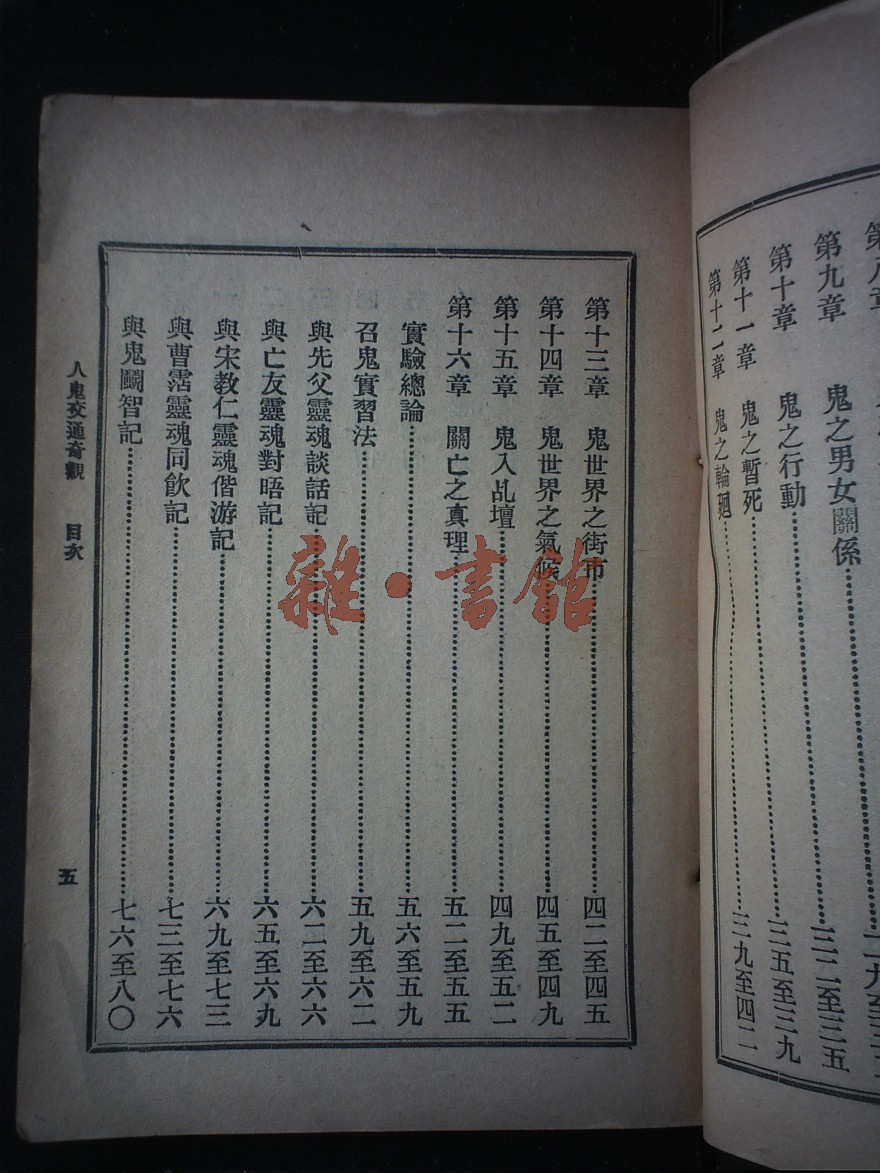 第八章
第九章　鬼之男女關係……三二至三五
第十章　鬼之行動……三五至三九
第十一章　鬼之暫死
第十二章　鬼之輪廻……三九至四二
第十三章　鬼世界之街市……四二至四五
第十四章　鬼世界之氣候……四五至四九
第十五章　鬼入乩壇……四九至五二
第十六章　關亡之真理……五二至五五
實驗總論……五六至五九
召鬼實習法……五九至六二
與先父靈魂談話記……六二至六六
與亡友靈魂對晤記……六五至六九
與宋教仁靈魂偕游記……六九至七三
與曹霑靈魂同飲記……七三至七六
與鬼鬭智記……七六至八〇
人鬼交通奇觀　目次
五
雜·書館